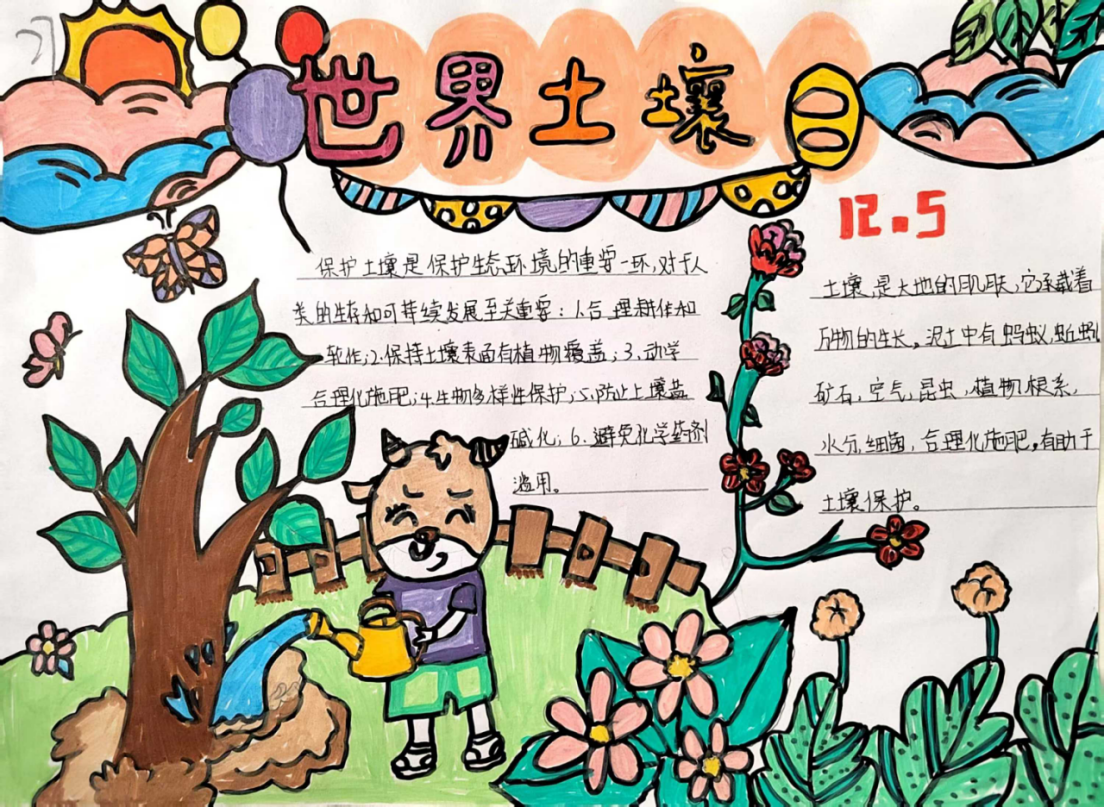 世界土壤日
12.5
保护土壤是保护生态环境的重要一环,对于人
类的生存和可持续发展至关重要:1.合理耕作和
轮作;2.保持土壤表面有植物覆盖;3.动学
合理化施肥;4.生物多样性保护;5.防止土壤盐
碱化;6.避免化学药剂
滥用。
土壤是大地的肌肤,它承载着
万物的生长,泥土中有蚂蚁,蚯蚓,
矿石,空气,昆虫,植物根系,
水分,细菌,合理化施肥,有助于
土壤保护。